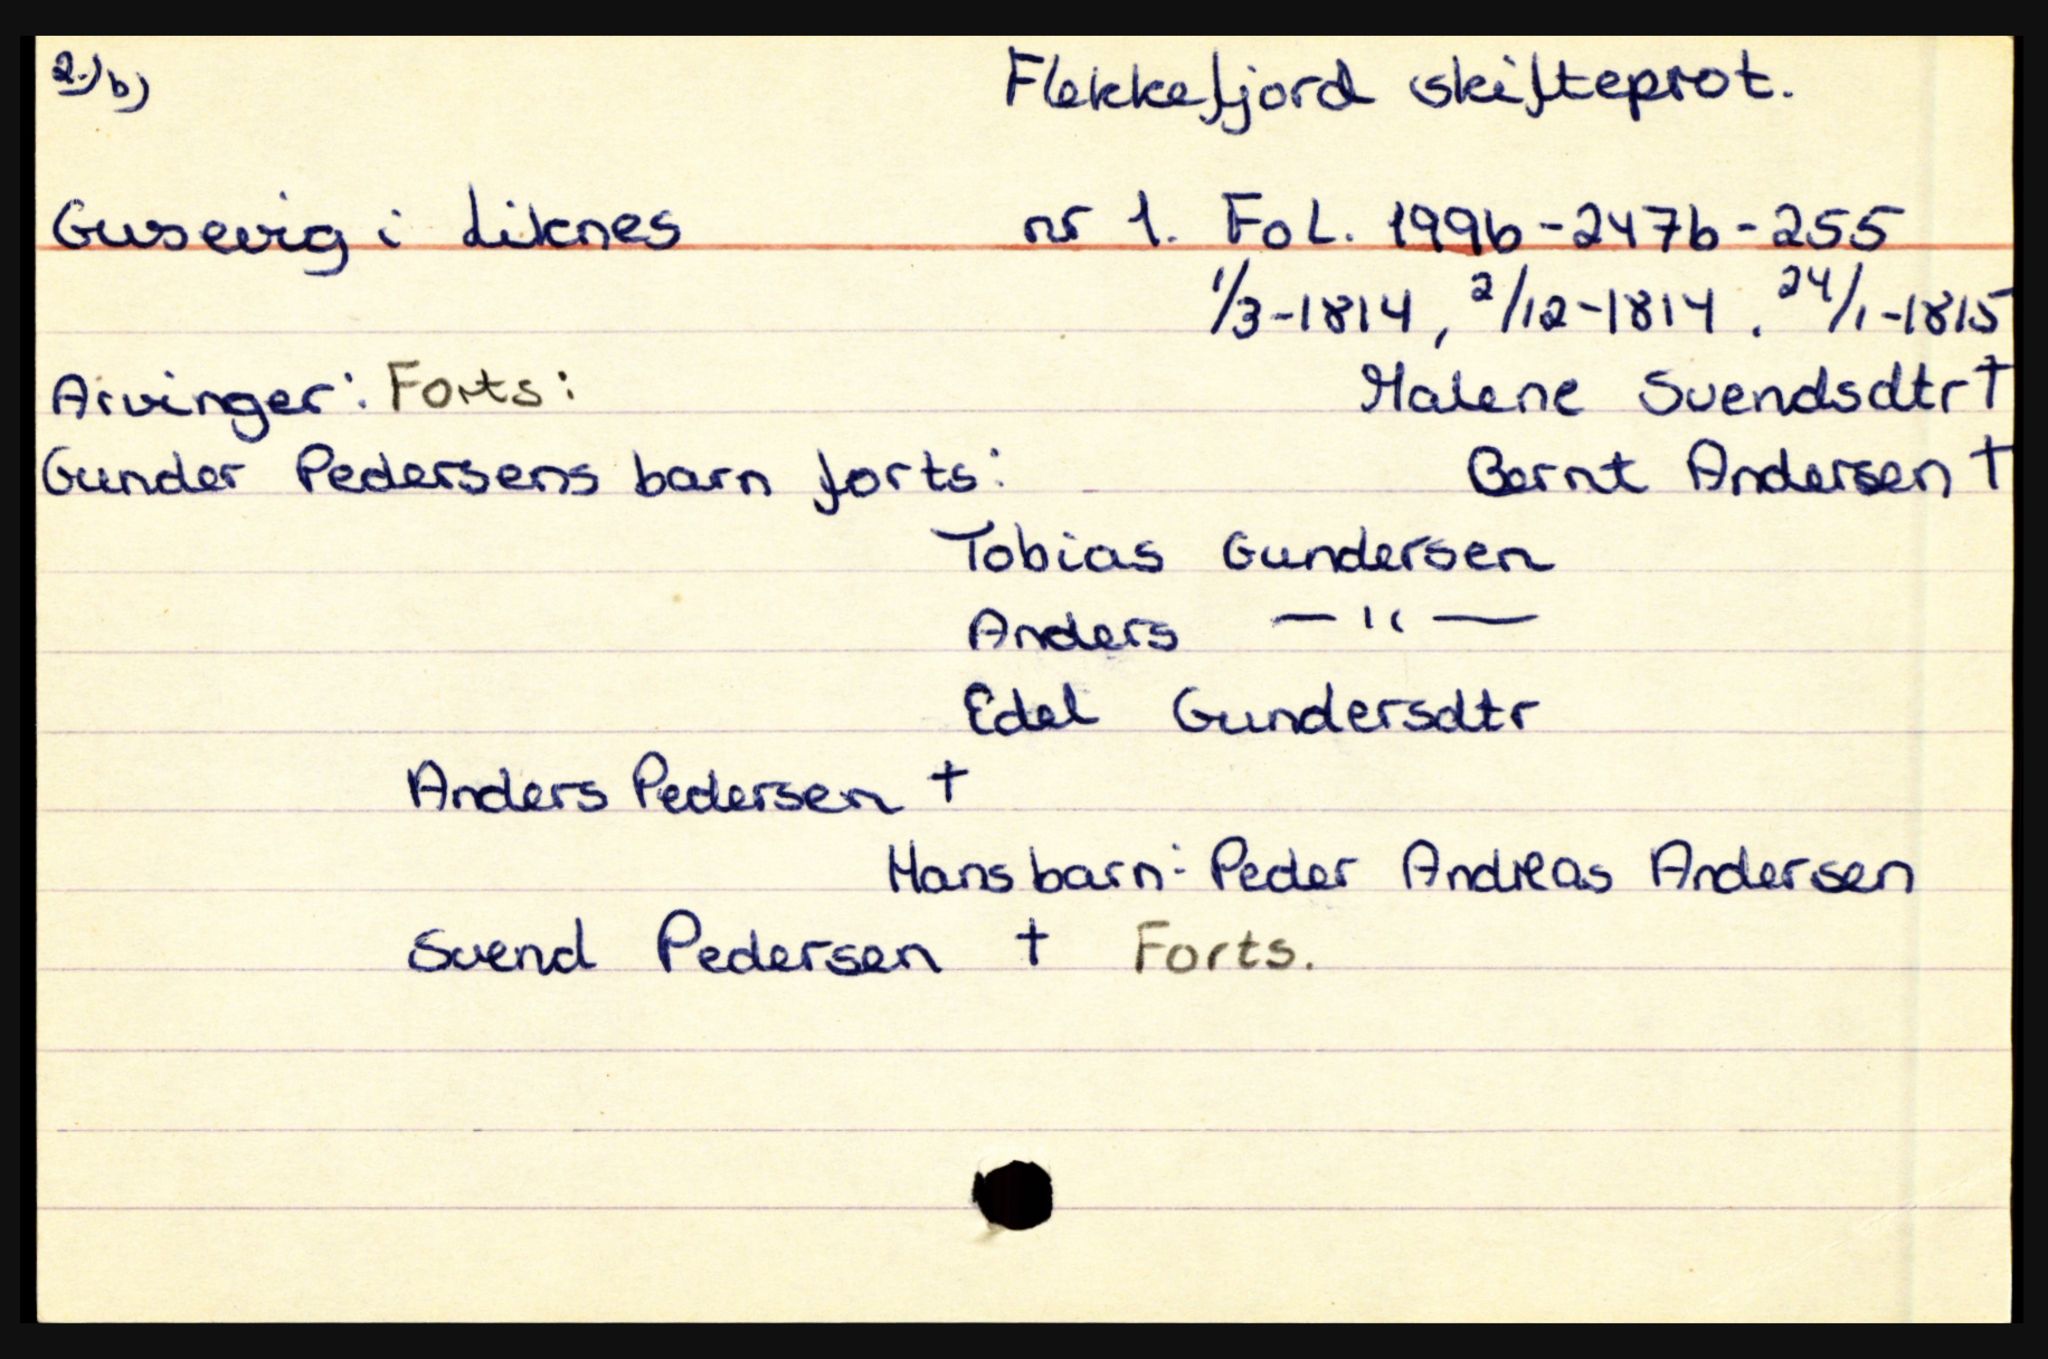 2.) b) Flekkefjord skifteprot.
Gusevig i Liknes nr 1. Fol. 199b-247b-255
1/3-1814, 2/12-1814, 24/1-1815
Arvinger: Forts: Malene Svendsdtr †
Gunder Pedersens barn forts: Bernt Andersen †
Tobias Gundersen
Anders — " —
Edel Gundersdtr
Anders Pedersen †
Hans barn: Peder Andreas Andersen
Svend Pedersen † Forts.